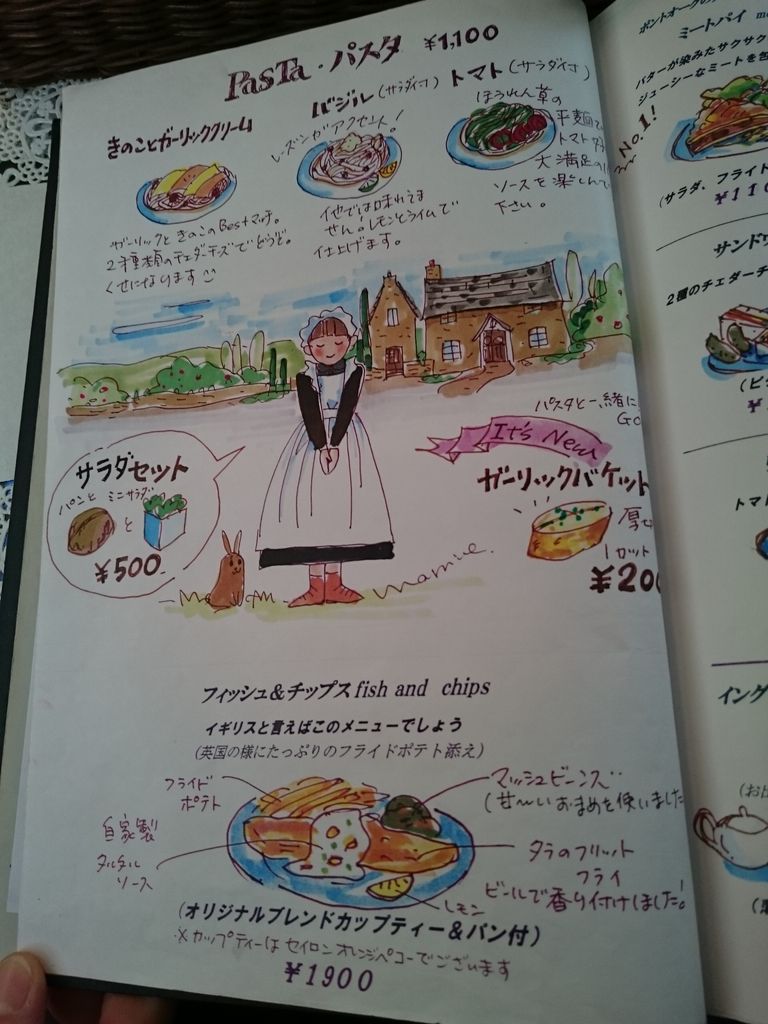 PasTa・パスタ ¥1,100
きのことガーリッククリーム
ガーリックときのこのBestマッチ。
2種類のチェダーチーズでどうぞ。
くせになります
バジル(サラダ付)
レーズンがアクセント!
他では味わえま
せん!レモンとライムで
仕上げます。
トマト(サラダ付)
ほうれん草の
平麺で
トマト
大満足の
ソースを楽しんで
下さい。
サラダセット
パンと ミニサラダ
と
¥500
パスタと一緒に
It's New
ガーリックバケット
厚切
1カット
¥200
mamive.
フィッシュ&チップス fish and chips
イギリスと言えばこのメニューでしょう
(英国の様にたっぷりのフライドポテト添え)
フライド
ポテト
自家製
タルタル
ソース
マッシュビーンズ
(甘〜いおまめを使いました
タラのフリット
フライ
ビールで香り付けしました!
レモン
(オリジナルブレンドカップティー&パン付)
※カップティーはセイロンオレンジペコーでございます
¥1900
ミートパイ
バターが染みたサクサク
ジューシーなミートを包
No.1!
(サラダ、フライド
¥110
サンドウ
2種のチェダーチ
トマト
イング